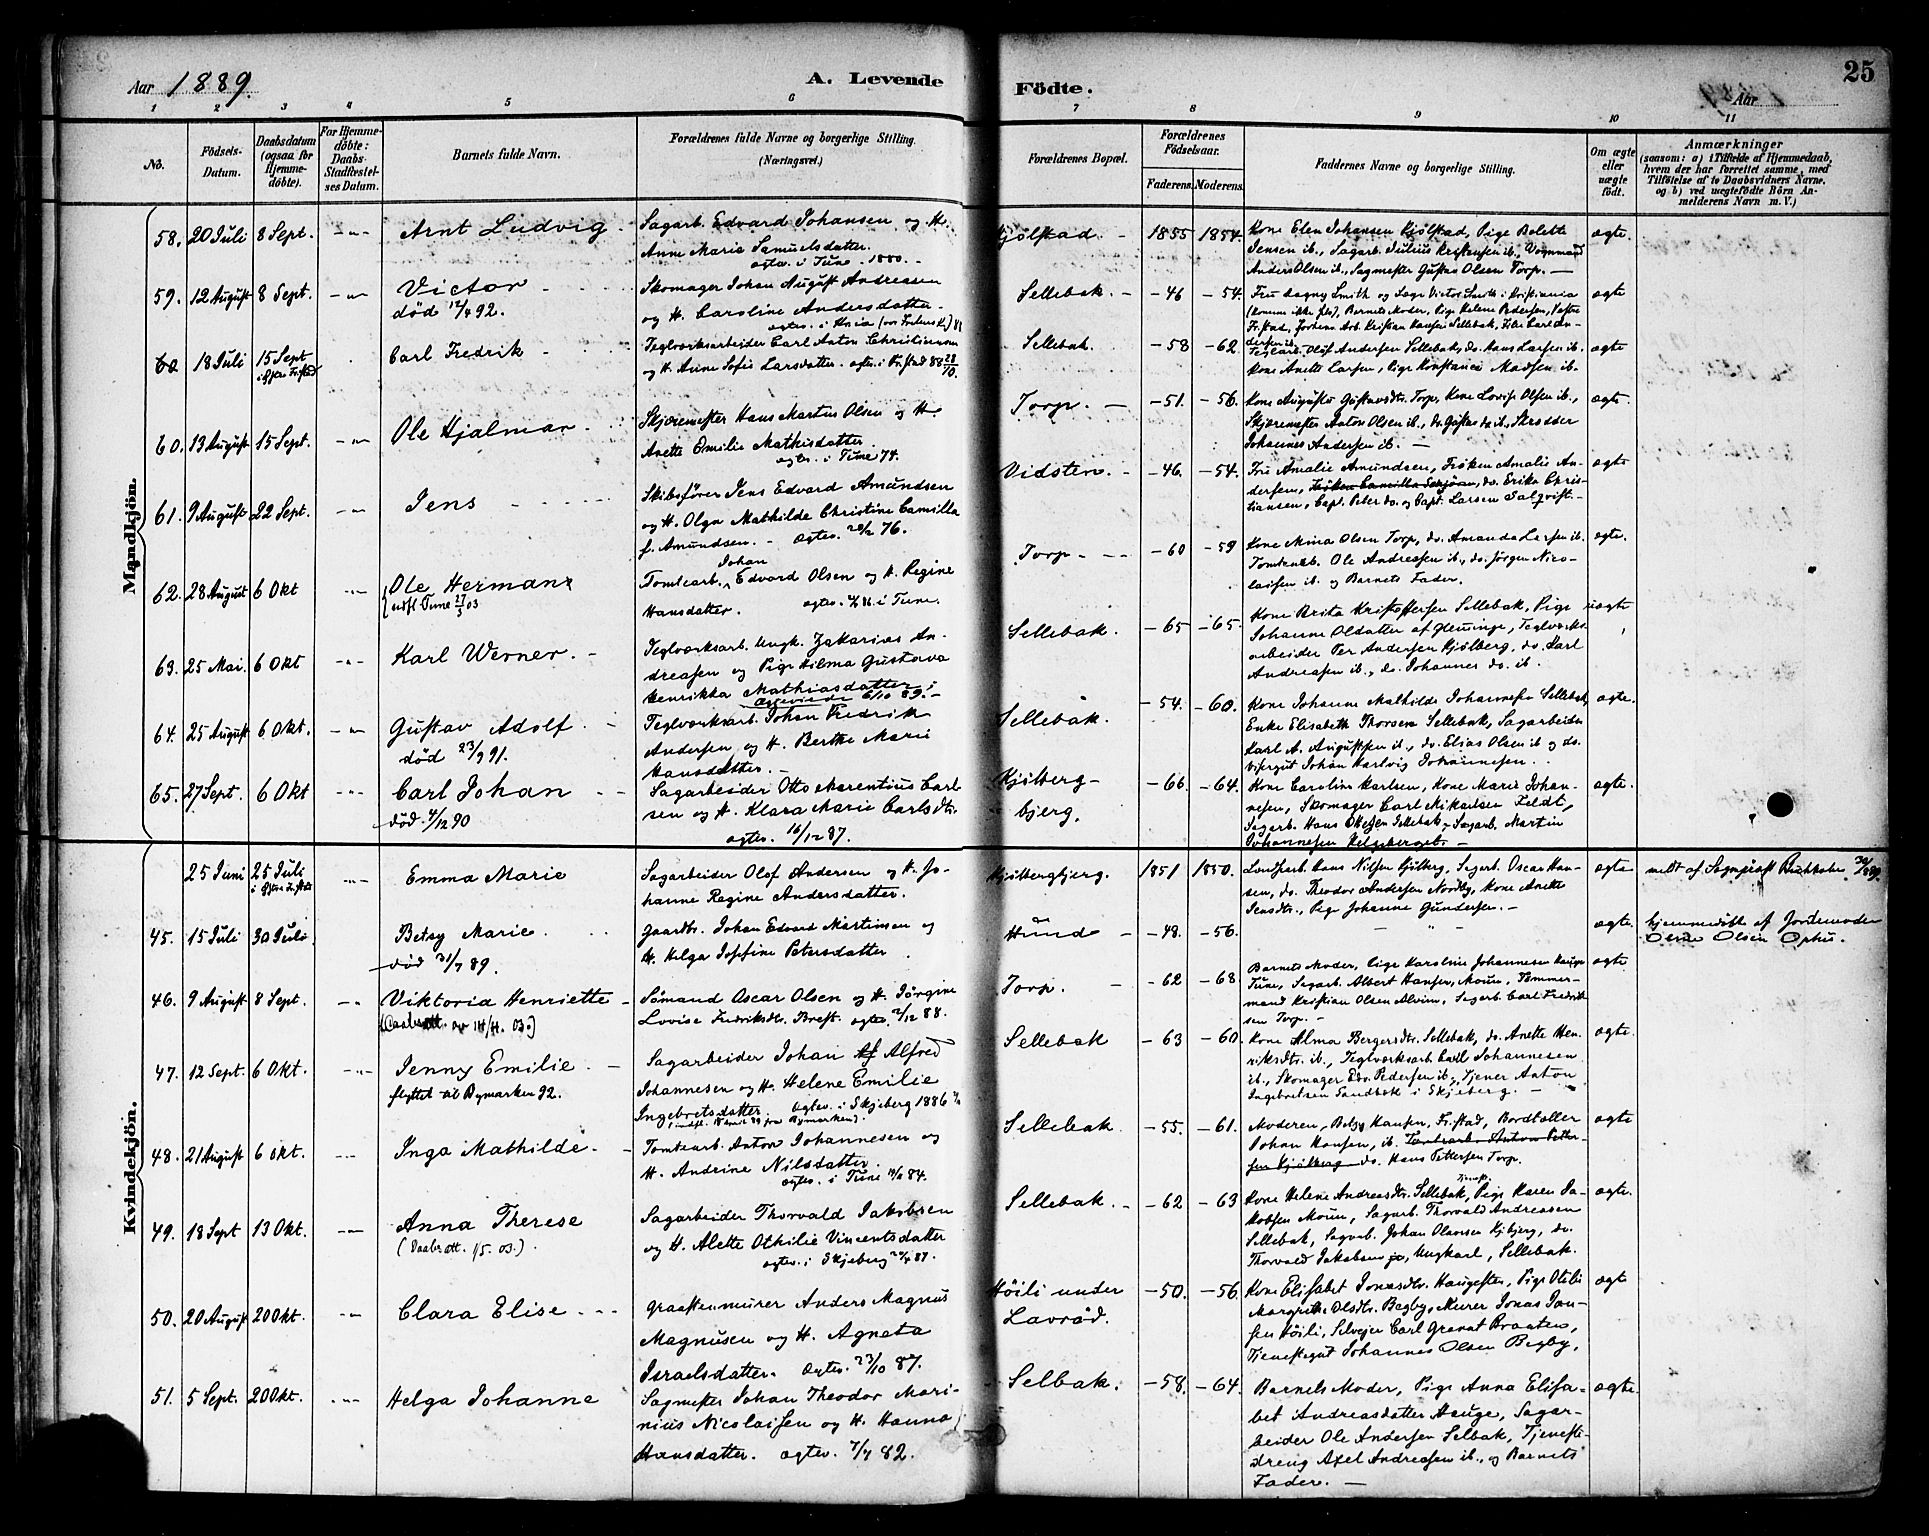 Aar 1889.
A. Levende
Födte.
25
Aar
1 2 3 4 5 6 7 8 9 10 11
No.
Födsels-
Datum.
Daabsdatum
(ogsaa for
Hjemme-
döbte).
For Hjemme-
döbte:
Daabs-
Stadfestel-
ses Datum.
Barnets fulde Navn.
Forældrenes fulde Navne og borgerlige Stilling.
(Næringsvei.)
Forældrenes Bopæl.
Forældrenes
Födselsaar.
Faderens.
Moderens.
Faddernes Navne og borgerlige Stilling.
Om ægte
eller
uægte
födt.
Anmærkninger
(saasom: a) i Tilfælde af Hjemmedaab,
hvem der har forrettet samme, med
Tilföielse af to Daabsvidners Navne,
og b) ved uægtefödte Börn An-
melderens Navn m. V.)
Mandkjön.
58. 20 Juli 8 Sept. -"- Arnt Ludvig
Sagarb. Edvard Johansen og H.
Anne Maria Samuelsdatter.
egtev. i Tune 1880.
Kjölstad. 1855 1854.
Kone Elen Johansen Kjölstad, Pige Bolette
Jensen ib., Sagarb. Julius Kristensen ib., Vognmand
Anders Olsen ib., Sagmester Gustav Olsen Torp.
ægte.
59. 12 August 8 Sept. -"- Victor
död 12/4 92.
Skomager Johan August Andreasen
og H. Caroline Andersdatter
Sellebak. -46 -54.
Fru Dagny Smith og Læge Victor Smith i Kristiania
Barnets Moder, Pige Helene Pedersen,
ægte
60 18 Juli 15 Sept
i Östre Fr.stad
Carl Fredrik
Teglværksarbeider Carl Anton Christiansen
og H. Anne Sofie Larsdatter. egtev. i Fr.stad 88 28/10.
Sellebak. -58 -62.
Teglarb. Olof Andersen Sellebak, do. Hans Larsen ib.
Kone Anette Larsen, Pige Konstance Madsen ib.
ægte
60. 13 August 15 Sept. -"- Ole Hjalmar
Skjæremester Hans Martin Olsen og H.
Anette Emilie Mathisdatter.
egtev. i Tune 74.
Torp. -51. -56.
Kone Augusta Gustavsdtr. Torp, Kone Lovise Olsen ib.,
Skjæremester Anton Olsen ib., do. Gustav do ib., Skrædder
Johannes Andersen ib.
ægte
61. 9 August 22 Sept. -"- Jens
Skibsförer Jens Edvard Amundsen
og H. Olga Mathilde Christine Camilla
f. Amundsen. - egtev. 20/2 76.
Vidsten. -46. -54.
Fru Amalie Amundsen, Fröken Amalie An-
dersen, do. Erika Chris-
tiansen, Capt. Peter do. og Capt. Larsen Salqvist
ægte
62. 28 August 6 Okt -"- Ole Herman
Tomtearb. Johan Edvard Olsen og H. Regine
Hansdatter.
Torp. -60 -59
Kone Mina Olsen Torp, do. Amanda Larsen ib.
Tomtearb. Ole Andreasen ib., do. Jörgen Nico-
laisen ib. og Barnets Fader.
ægte.
63. 25 Mai. 6 Okt -"- Karl Werner.
Teglværksarb. Ungk. Zakarias An-
dreasen og Pige Hilma Gustava
Henrikka Mathiasdatter
Sellebak. -65 -65.
Kone Brita Kristoffersen Sellebak, Pige
Johanne Olsdatter af Glemminge, Teglværks-
arbeider Per Andersen Kjölberg, do. Karl
Andreasen ib., do. Johannes do. ib.
uægte
64. 25 August 6 Okt. -"- Gustav Adolf
död 23/9 91.
Teglværksarb. Johan Fredrik
Andersen og H. Berthe Marie
Hansdatter.
Sellebak. -54. -60.
Kone Johanne Mathilde Johannesen Sellebak,
Enke Elisabeth Thorsen Sellebak, Sagarbeider
Karl A. Augustsen ib., do. Elias Olsen ib og do.
Johan Hartvig Johannesen.
ægte.
65. 27 Sept. 6 Okt -"- Carl Johan
död. 4/12 90
Sagarbeider Otto Marentius Carl-
sen og H. Klara Marie Carlsdtr.
egtev. 16/12 87.
Kjölberg-
bjerg. -66 -64.
Kone Caroline Karlsen, Kone Marie Johan-
nesen, Skomager Carl Mikaelsen Feldt,
Sagarb. Hans Olsen Sellebak, Sagarb. Martin
Johannesen
ægte.
Kvindekjön.
25 Juni 25 Juli
i Östre Fr.stad
-"- Emma Marie
Sagarbeider Olof Andersen og H. Jo-
hanne Regine Andersdatter.
Kjölbergbjerg. 1851 1850.
Hans Nilsen Kjölberg, Sagarb. Oscar Han-
sen, do. Theodor Andersen Nordby, Kone Anette
Jensdtr., Pige Johanne Gundersen.
ægte
meldt af Sogneprest
45. 15 Juli 30 Juli. Betsy Marie.
död 31/7 89.
Gaardbr. Johan Edvard Martinsen og
H. Helga Josefine Petersdatter
Hund -48. -56.
ægte.
hjemmedöbt af Jordemoder
Olsen Ophus.
46. 9 August 8 Sept. -"- Viktoria Henriette
(Daabsatt.
Sömand Oscar Olsen og H. Jörgine
Lovise Fredriksdtr. Brest. egtev. 2/12 88.
Torp. -62 -68
Barnets Moder, Pige Karoline Johannesen Hauge
Tune, Sagarb. Albert Hansen, Moum, Tömmer-
mand Kristian Olsen Alvim, Sagarb. Carl Fredrik-
sen Torp.
ægte
47. 12 Sept. 6 Okt. -"- Jenny Emilie
flyttet til Bymarken 92.
Sagarbeider Johan Alfred
Johannesen og H. Helene Emilie
Ingebretsdatter. egtev. i Skjeberg 1886
Sellebak -63 -60.
Kone Alma Bergersdtr. Sellebak, do. Anette Hen-
riksdtr. ib., Teglværksarb. Carl Johannesen
ib., Skomager Edv. Pedersen ib., Tjener Anton
Ingebretsen Sandbæk i Skjeberg.
ægte.
48. 21 August 6 Okt. -"- Inga Mathilde
Tomtearb. Anton Johannesen og
H. Andrine Nilsdatter.
egtev. i Tune 84.
Sellebak -55. -61.
Moderen, Betsy Hansen, Fr.stad, Bordtæller
Johan Hansen, ib. Tomtearb. Anton Petter-
sen Kjölberg do. Hans Pettersen Torp.
ægte
49. 18 Sept 13 Okt. -"- Anna Therese
(Daabsatt. 1/5. 03.)
Sagarbeider Thorvald Jakobsen
og H. Alette Othilie Vincentsdatter
egtev. i Skjeberg 87.
Sellebak. -62 -63
Kone Helene Andreasdtr. Sellebak, Pige Karen Ja-
kobsen Moum, Sagarb. Thorvald Andreassen
Sellebak, Sagarb. Johan Olavsen Kjbjerg, do.
Thorvald Jakobsen, Ungkarl, Sellebak.
ægte.
50. 20 August 20 Okt. -"- Clara Elise
Graastenmurer Anders Magnus
Magnusen og H. Agneta
Israelsdatter. egtev. 23/10 87.
Höili under
Lavröd. -50. -56.
Kone Elisabet Jonasdtr. Haugesten, Pige Otilie
Margrethe Olsdtr. Begby, Murer Jonas Jan-
sen Höili, Selveier Carl Granat Braaten,
Tjenestegut Johannes Olsen Begby.
ægte
51. 5 Sept. 20 Okt. -"- Helga Johanne
Sagmester Johan Theodor Mari-
nius Nicolaisen og H. Hanna
Hansdatter. egtev. 7/7 82.
Selbak. -58. -64.
Barnets Moder, Pige Anna Elisa-
bet Andreasdatter Hauge, Sagar-
beider Ole Andersen Selbak, Tjeneste-
dreng Axel Andreasen ib., og Barnets
Fader.
ægte.